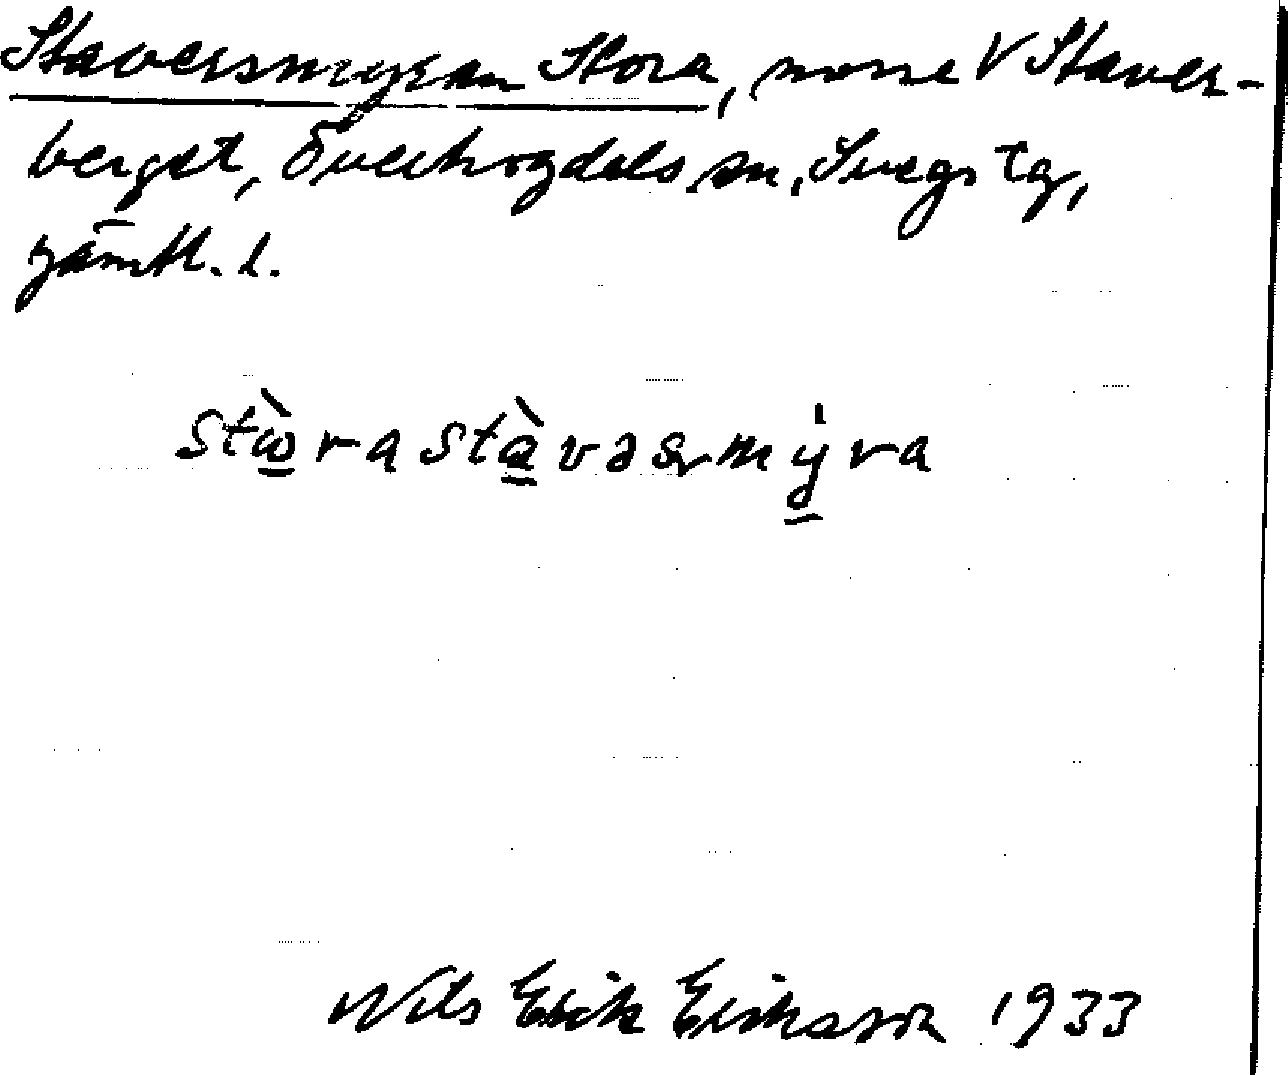 Staversmyran Stora, mosse V Staver-
berget, Överhogdals sn, Svegs tg,
Jämtl. l.
stὼ̲ra stà̲vəsₚmẏ̲ra
Nils Erik Eriksson 1933